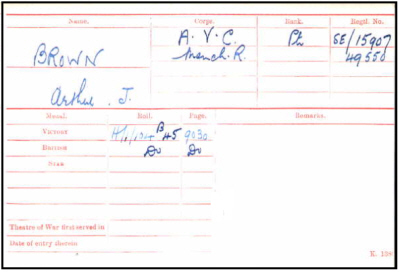 Name. Corps. Rank. Regtl. No.
BROWN A. V. C. Pte SE/15907
Manch. R. 49550
Arthur. J.
Medal. Roll. Page. Remarks.
Victory B45 9030
British Do Do
Star
Theatre of War first served in
Date of entry therein